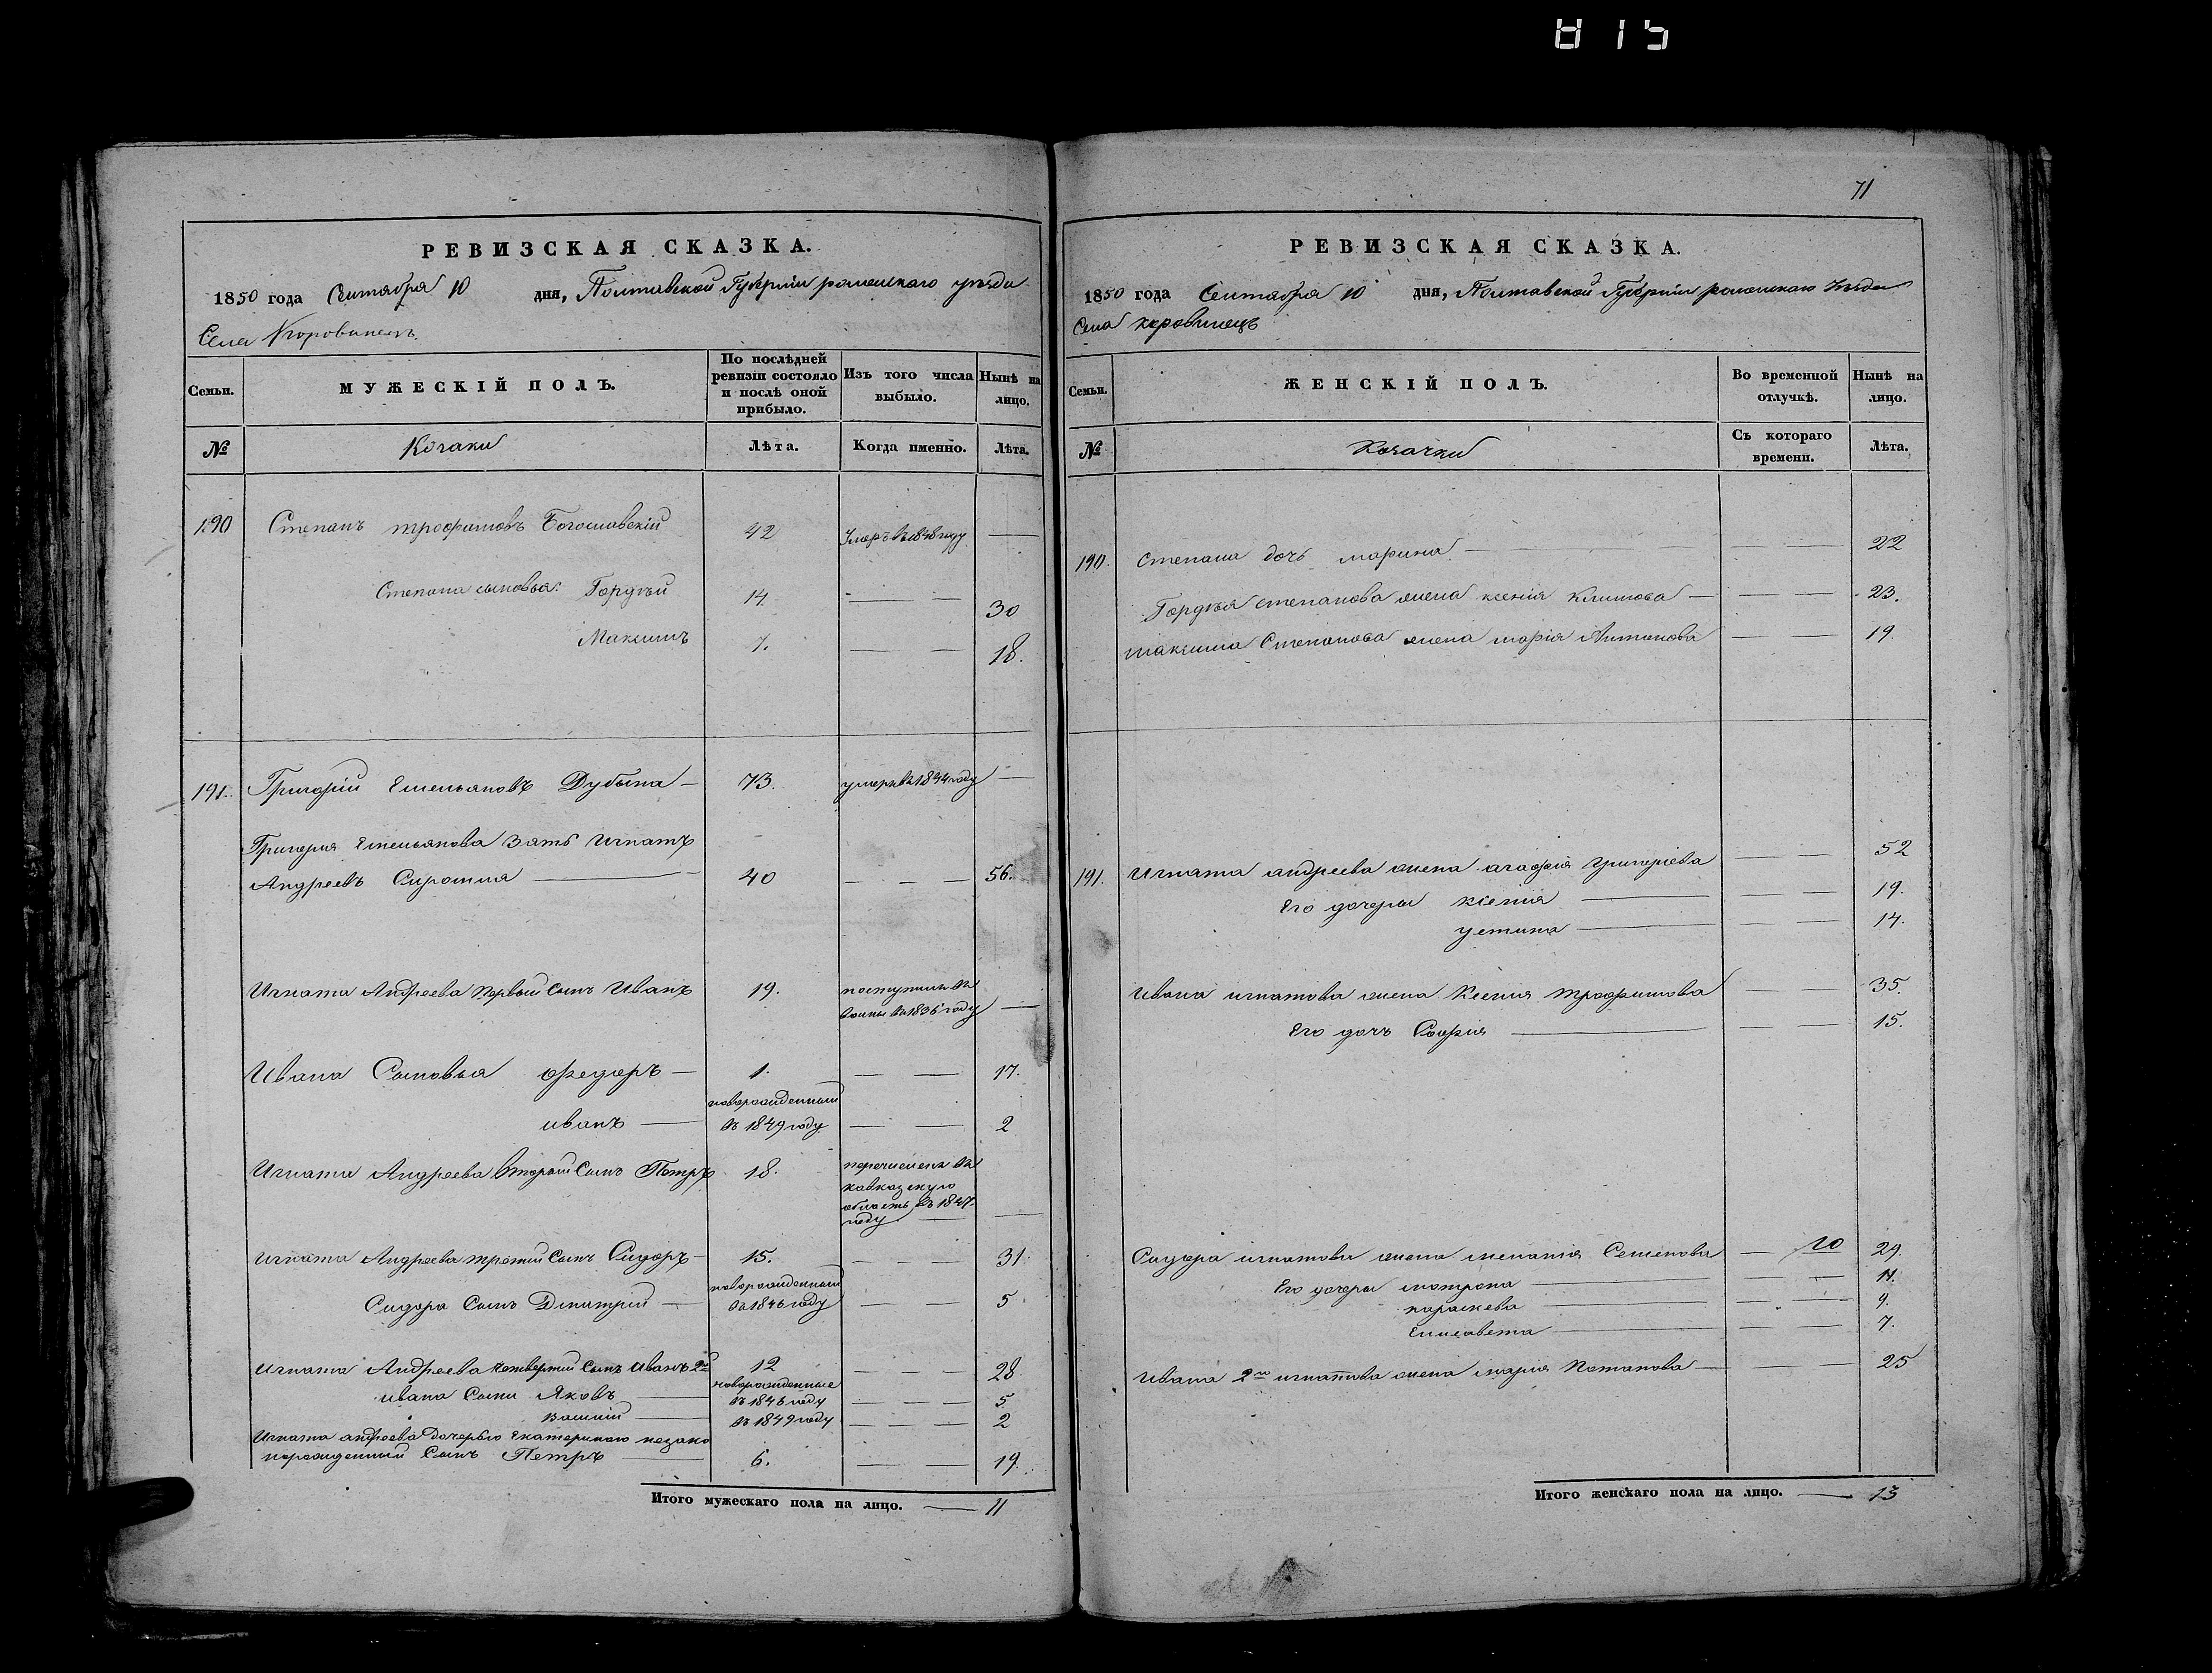 815
РЕВИЗСКАЯ СКАЗКА.
1850 года Сентября 10 дня, Полтавской Губерніи роменскаго уѣзда
Села Коровинецъ
Семьи.
МУЖЕСКІЙ ПОЛЪ.
По послѣдней ревизіи состояло и послѣ оной прибыло.
Изъ того числа выбыло.
Нынѣ на лицо.
№
Козаки
Лѣта.
Когда именно.
Лѣта.
190 Степанъ трофимовъ Богославскій 42 Умеръ въ 1848 году —
Степана сыновья: Гордѣй 14 — — 30
Максимъ 7. — — 18.
191. Григорій Емельяновъ Дубына — 73. умеръ въ 1844 году —
Григорія Емельянова Зять Игнатъ
Андреевъ Сиротка — 40 — — — 56.
Игната Андреева Первый Сынъ Иванъ 19. поступилъ въ
воины въ 1836 году —
Ивана Сыновья федоръ — 1. — — 17.
новорожденный
иванъ — въ 1849 году — — 2
Игната Андреева Вторый Сынъ Петръ 18. перечисленъ въ
кавказскую
область въ 1847
году — —
Игната Андреева третій Сынъ Сидоръ — 15. — — — 31
новорожденный
Сидора Сынъ Дмитрій — въ 1846 году — — 5
Игната Андреева Четвертый Сынъ Иванъ 2й 12 — — — 28
новорожденные
ивана Сыны Яковъ — въ 1846 году — — — 5
Василій — въ 1849 году — — — 2
Игната андреева Дочерью Екатериною незако
норожденный Сынъ Петръ — 6. — — 19.
Итого мужескаго пола на лицо. — 11
71
РЕВИЗСКАЯ СКАЗКА.
1850 года Сентября 10 дня, Полтавской Губерніи роменскаго Уѣзда
Села коровинецъ
Семьи.
ЖЕНСКІЙ ПОЛЪ.
Во временной отлучкѣ.
Нынѣ на лицо.
№
Козачки
Съ котораго времени.
Лѣта.
190. Степана дочь марина — — — 22
Гордѣя степанова жена ксенія Климова — — — 23.
максима Степанова жена марія Антонова — — 19.
191. Игната андреева жена агафія григоріева — — 52
Его дочеры ксенія — — — 19.
устина — — — 14.
Ивана игнатова жена Ксенія трофимова — — 35.
Его дочь Софія — — 15.
Сидора игнатова жена меланія Семенова — 10 29
Его дочеры мотрона — — — 11.
параскева — — — 9.
Елисавета — — — 7.
Ивана 2го игнатова жена марія Потапова — — — 25
Итого женскаго пола на лицо. — 13